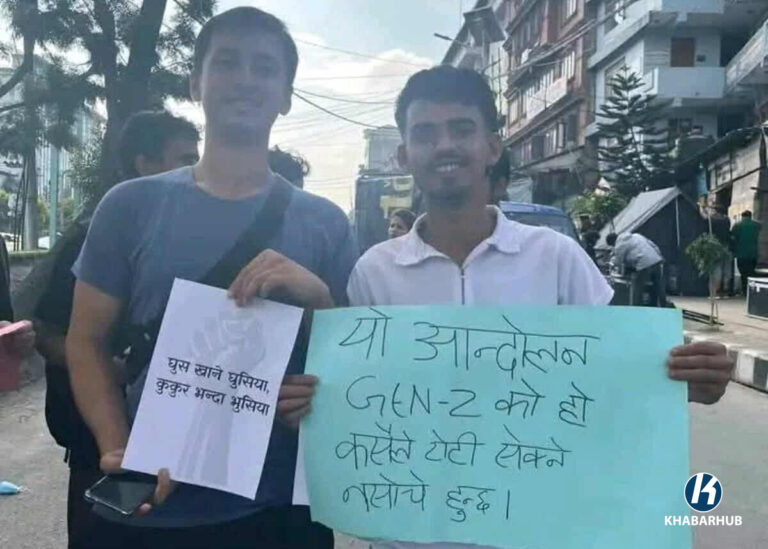 घुस खाने घुसिया,
कुकुर भन्दा भुसिया
यो आन्दोलन
GEN-Z को हो
कसैले रोटी सेक्ने
नसोचे हुन्छ।
KHABARHUB